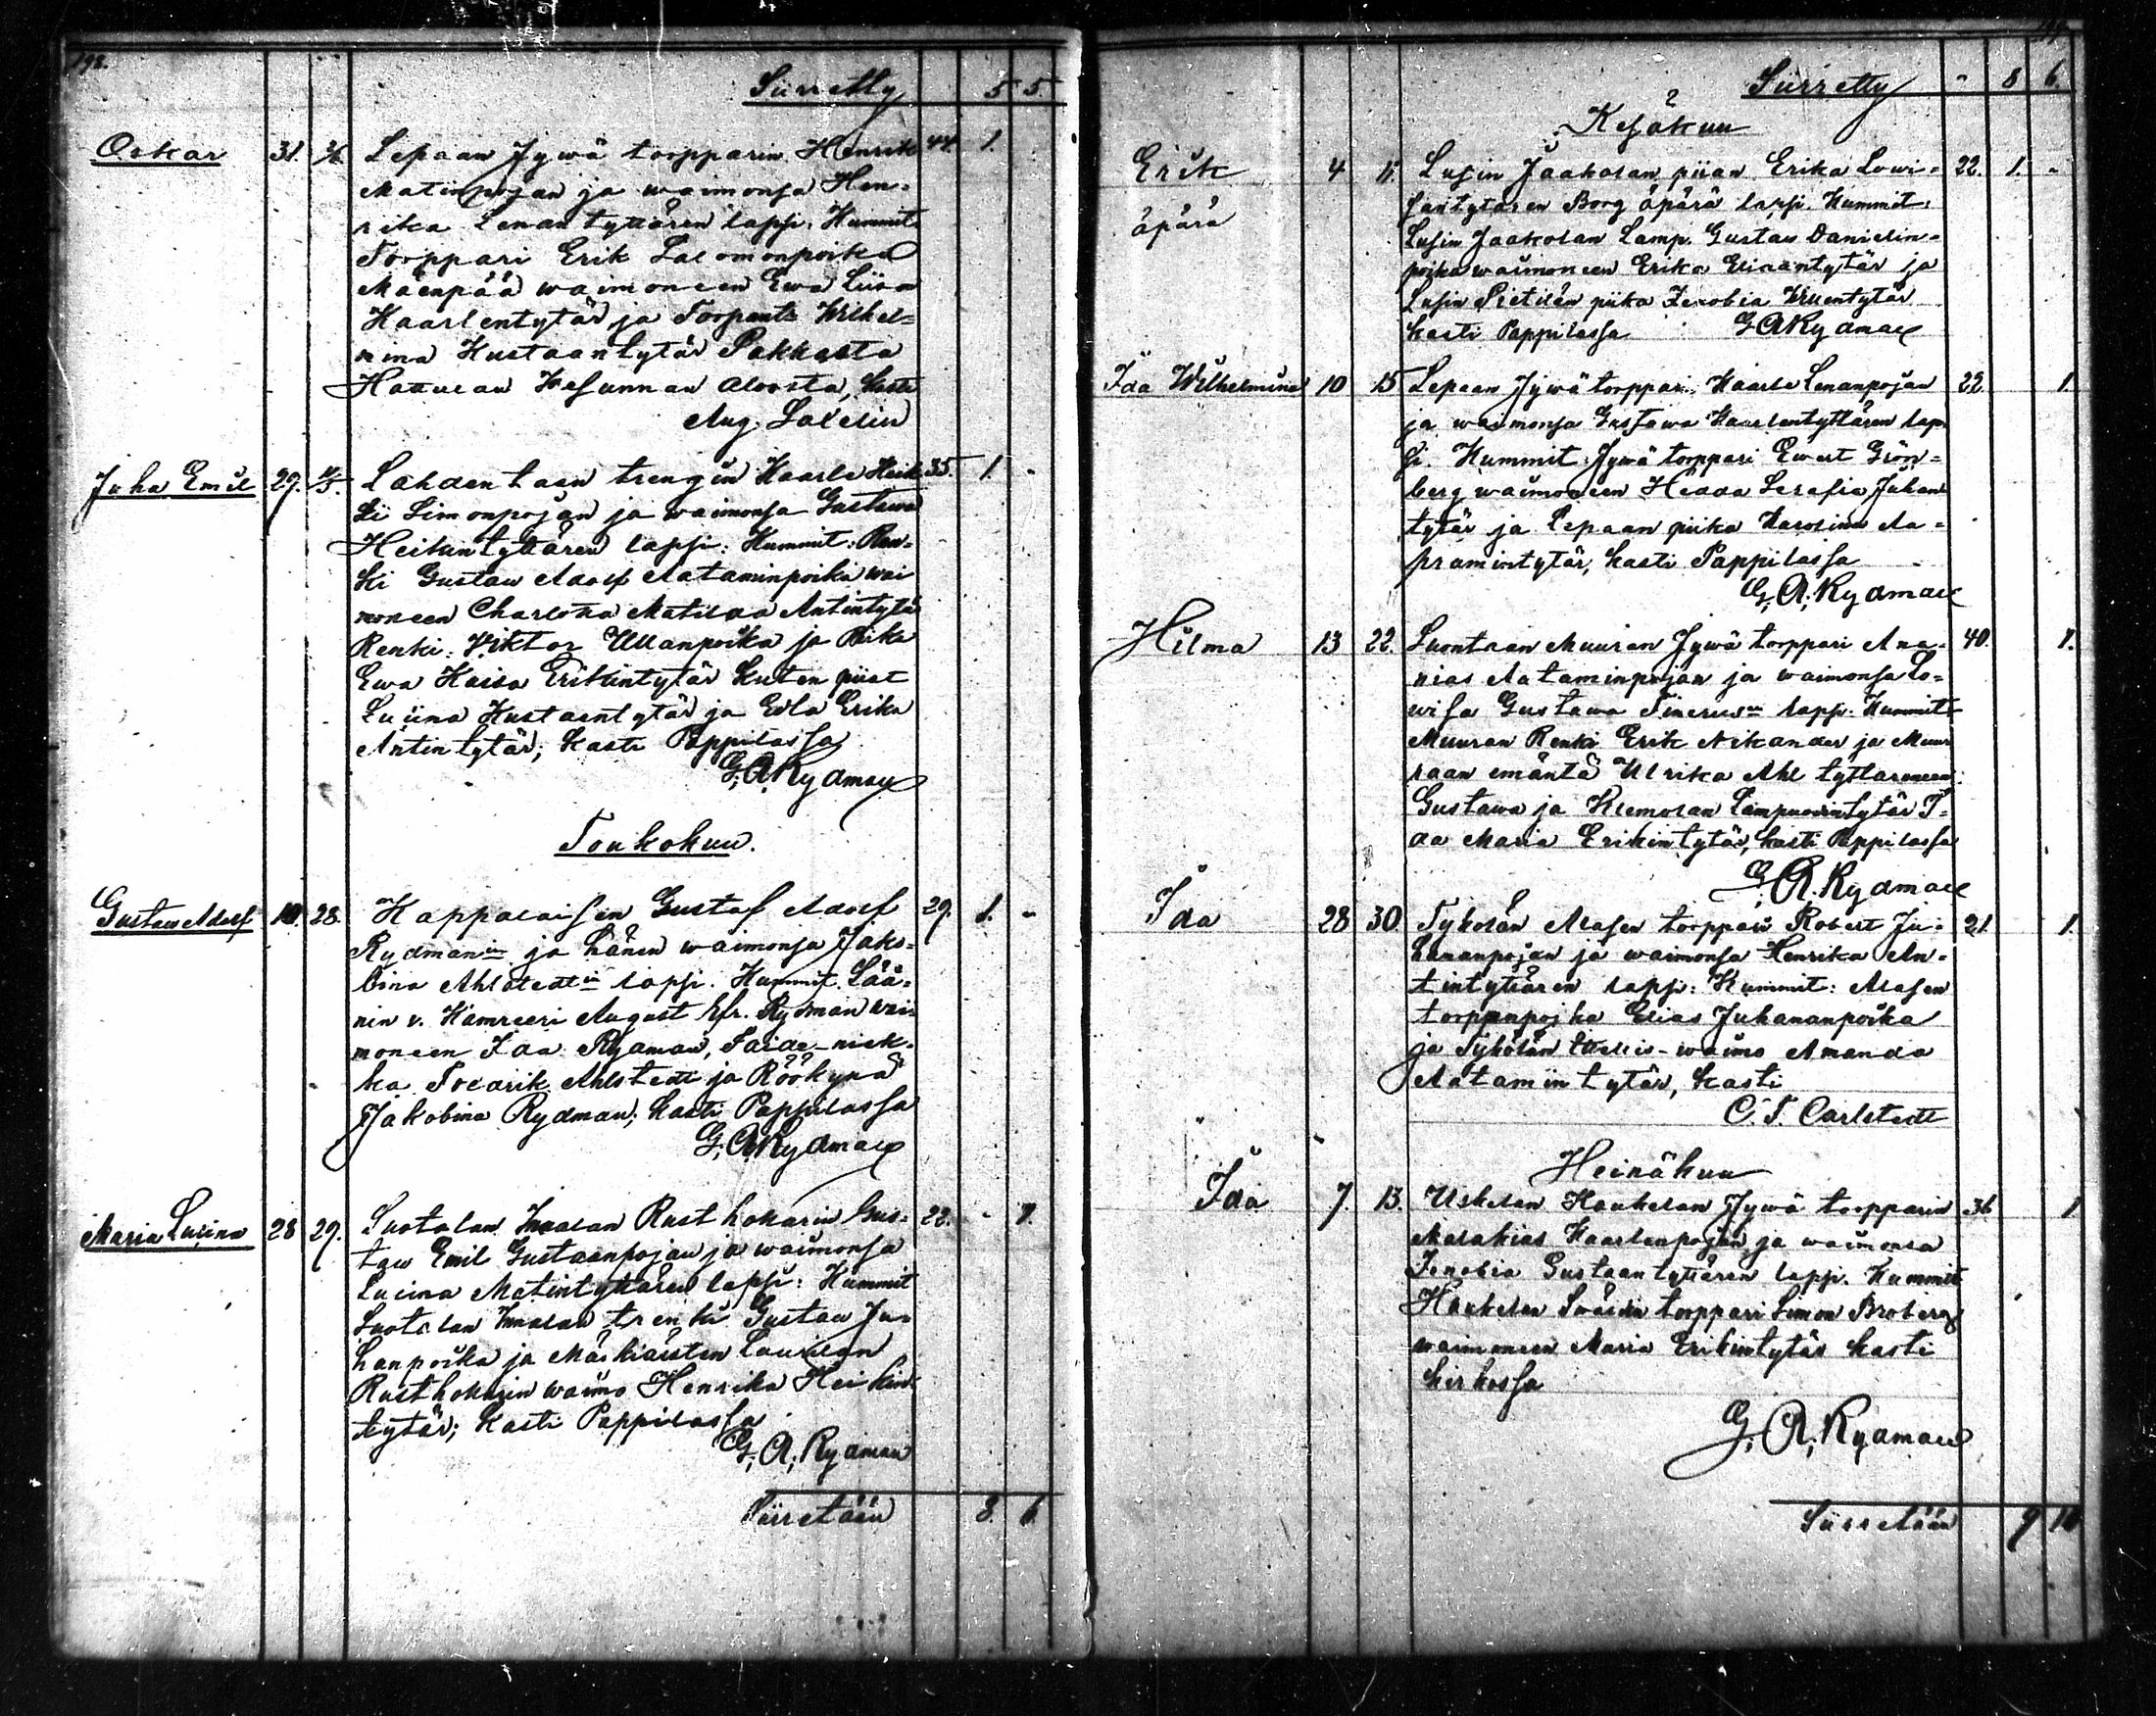 198.
Siirretty 5 5
Oskar 31. Lepaan Jywä torpparin Henrik 44. 1.
Matinpojan ja waimonsa Hen-
rika Lenantyttären lapsi. Kummit.
Torppari Erik Salomonpoika
Mäenpää waimoneen Ewa Liisa
Kaarlentytär ja Torpant: Wilhel-
mina Kustaantytär Pakkasta
Hauhon Kesunnan aloosta, kasti
Aug. Laxelin
Juha Emil 29. Lahdentaan trengin Kaarle Heik- 35. 1. -
ki Simonpojan ja waimonsa Gustawa
Heikintyttären lapsi: Kummit: Ren-
ki Gustaw Adolf Aataminpoika wai
moneen Charlotta Matilda Antintytär
Renki: Wiktor Ullanpoika ja Piika
Ewa Kaisa Erikintytär kuten piiat
Luiina Kustaantytär ja Edla Erika
Antintytär, kasti Pappilassa
G. A. Rydman
Toukokuu.
Gustaw Adolf 10. 28. Kappalaisen Gustaf Adolf 29. 1. -
Rydmanin ja hänen waimonsa Jako-
bina Ahlstedtin lapsi. Kummit. Lää-
nin v. Kamreeri August Hfr. Rydman wai-
moneen Ida Rydman, Taide-niek-
ka Fredrik Ahlstedt ja Röökynä
Jakobina Rydman; kasti Pappilassa
G. A. Rydman
Maria Lusina 28 29. Suotalan Innalan Rusthokarin Gus- 22. - 1.
taw Emil Gustaanpojan ja waimonsa
Lusina Matintyttären lapsi: Kummit
Suotalan Innalan trenki Gustaw Ju-
hanpoika ja Mäskiäisten Laurilan
Rusthokarin waimo Henrika Heikin-
tytär; Kasti Pappilassa
G. A. Rydman
Siirretään 8. 6.
Siirretty " 8 6.
Kesäkuu
Erik 4 11. Lusin Jaakolan piian Erika Lowi- 22. 1. -
äpärä santytären Borg äpärä lapsi. Kummit:
Lusin Jaakolan Lamp. Gustaw Danielin-
poika waimoneen Erika Erikintytär ja
Lusin Pietilän piika Zenobia Willentytär
kasti Pappilassa G. A. Rydman
Ida Wilhelmina 10 15 Lepaan Jywä torppari Kaarle Lenanpojan 22. 1.
ja waimonsa Gustawa Kaarlentyttären lap-
si. Kummit: Jywä torppari Ewert Grön-
berg waimoneen Hedda Serafia Juhan
tytär ja Lepaan piika Karolina Aa-
pramintytär, kasti Pappilassa
G. A. Rydman
Hilma 13 22. Luontaan Muuran Jywä torppari Ana- 40. 1.
nias Aataminpojan ja waimonsa Lo-
wisa Gustawa lapsi. Kummit:
Muuran Renki Erik Nikander ja Muu-
raan emäntä Ulrika Ahl tyttaroneen
Gustawa ja Klemolan Lampuodintytär I-
da Maria Erikintytär, kasti Pappilassa
G. A. Rydman
Ida 28 30. Tykölän Alasen torppari Robert Ju- 21. 1.
hananpojan ja waimonsa Henrika An-
tintyttären lapsi: Kummit: Alasen
torpanpojka Elias Juhananpoika
ja Tykölän waimo Amanda
Aatamiintytär, kasti
C. F. Carlstedt
Heinäkuu
Ida 7. 13. Uskelan Haukelan Jywä torpparin 36 1
Malakias Kaarlenpojan ja waimonsa
Zenobia Gustaantyttären lapsi. Kummit
Haukelan torppari Simon Broberg
waimoneen Maria Erikintytär kasti
kirkossa
G. A. Rydman
Siirretään 9 10